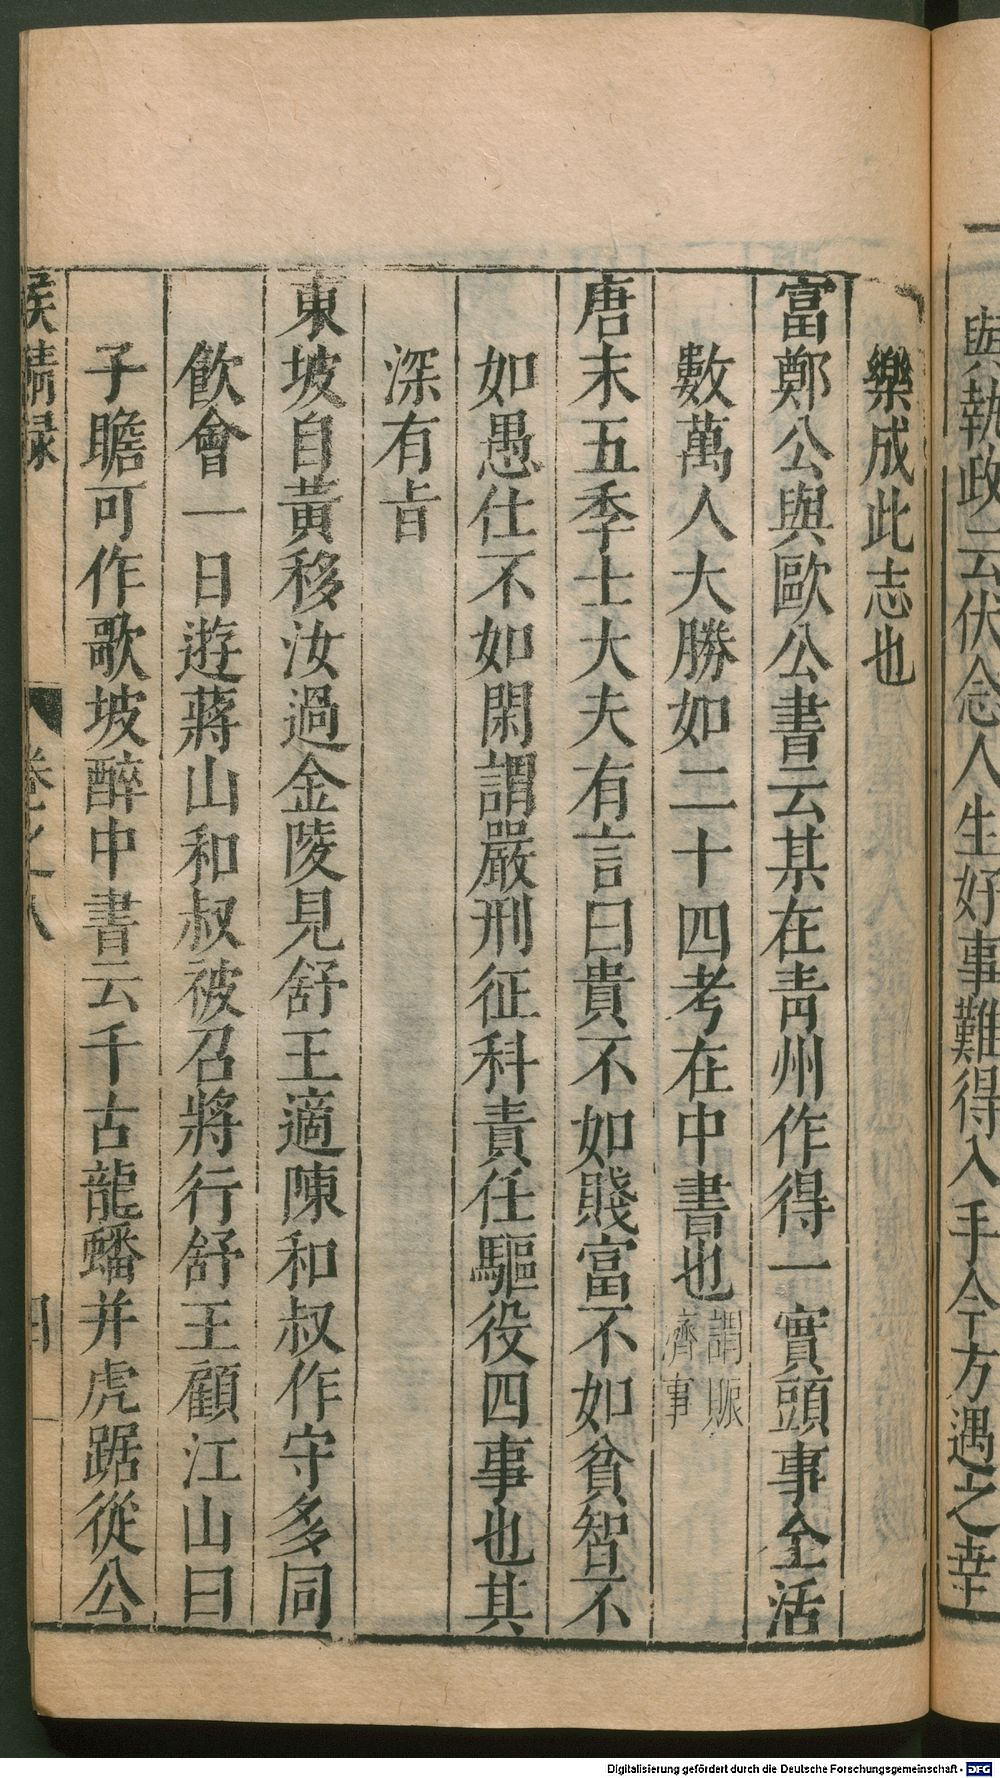 與執政云伏念人生好事難得入手今方遇之幸
樂成此志也
富鄭公與歐公書云某在靑州作得一實頭事全活
數萬人大勝如二十四考在中書也謂賑濟事
唐末五季士大夫有言曰貴不如賤富不如貧智不
如愚仕不如閑謂嚴刑征科責任驅役四事也其
深有旨
東坡自黃移汝過金陵見舒王適陳和叔作守多同
飮會一日遊蔣山和叔被召將行舒王顧江山曰
子瞻可作歌坡醉中書云千古龍蟠并虎踞從公
侯鯖録 卷之八 四
Digitalisierung gefördert durch die Deutsche Forschungsgemeinschaft - DFG